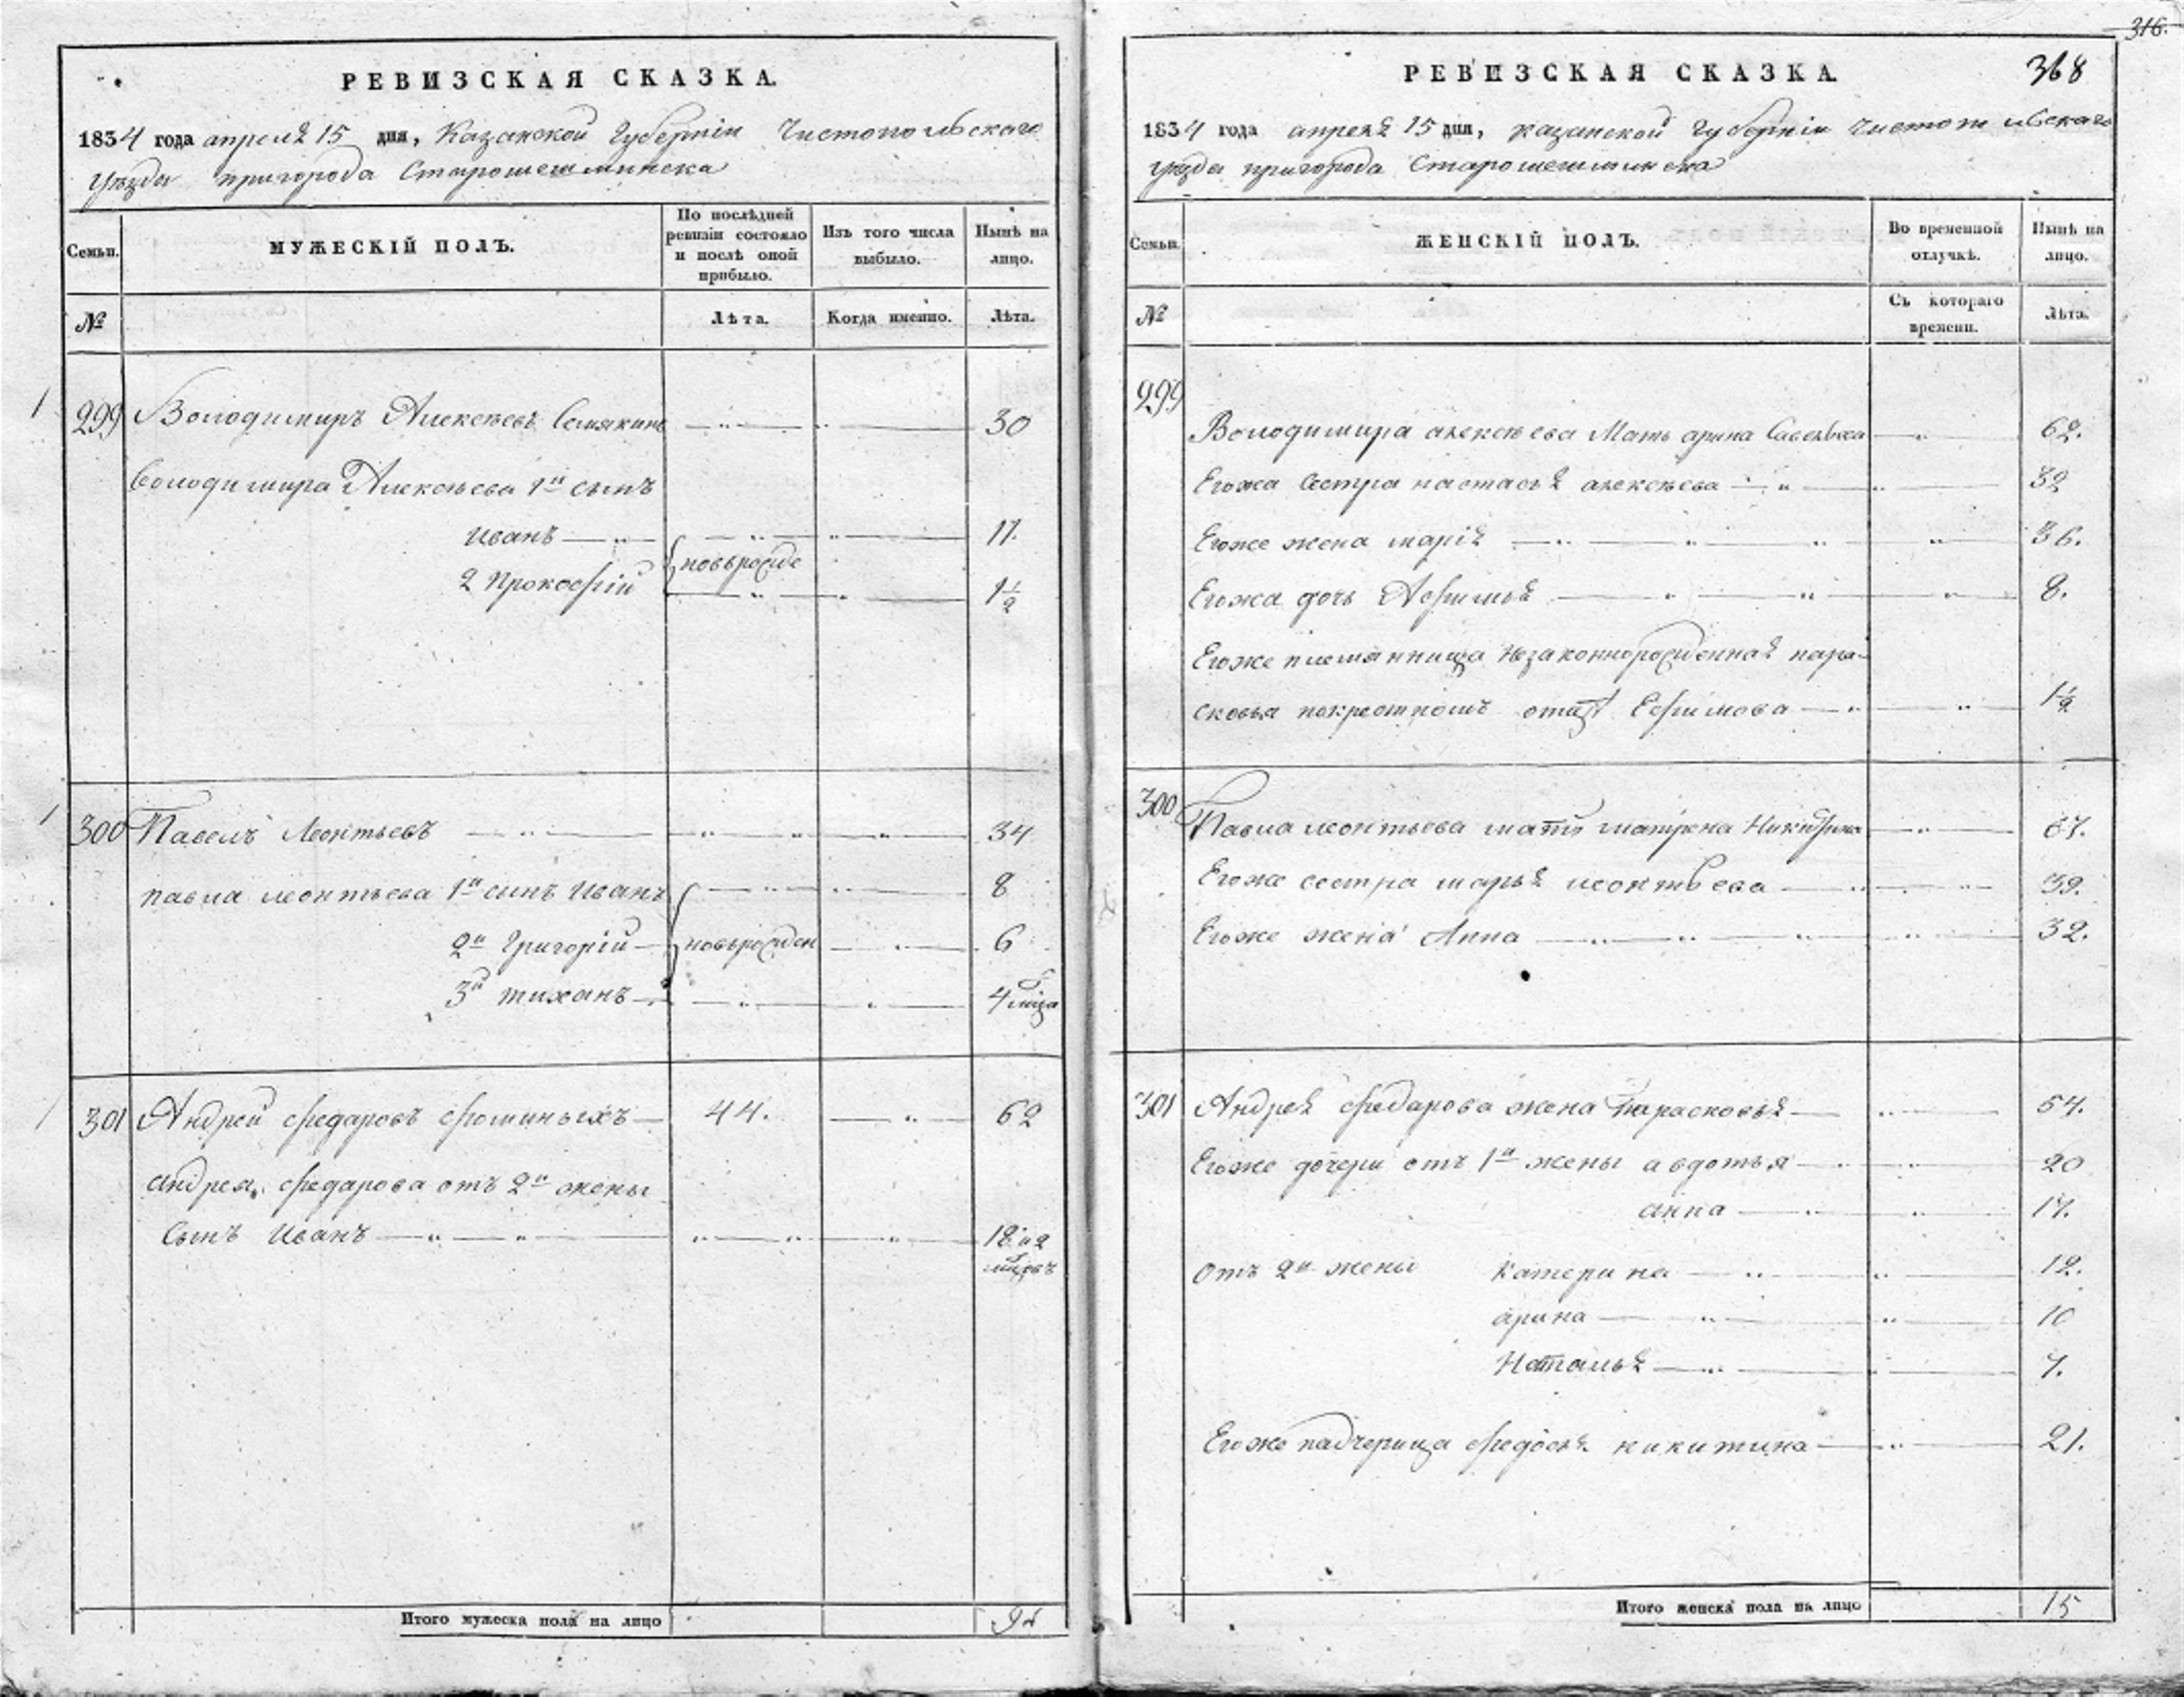 316.
РЕВИЗСКАЯ СКАЗКА.
1834 года апреля 15 дня, Казанской Губернии Чистопольского
уезда пригорода Старошешминска
Семьи.
МУЖЕСКІЙ ПОЛЪ.
По послѣдней ревизіи состояло и послѣ оной прибыло.
Изъ того числа выбыло.
Нынѣ на лицо.
№
Лѣта.
Когда именно.
Лѣта.
1 299 Володимиръ Алексѣевъ Семякинъ 30
Володимира Алексѣева 1й сынъ
Иванъ 11.
новорожде
2 Прокофій 1½
1 300 Павелъ Леонтьевъ 34
павла леонтьева 1й сынъ Иванъ 8
2й Григорій новорожден 6
3й тиханъ 4 мца
1 301 Андрей федаровъ фоминыхъ 44. 62
андрея федарова отъ 2й жены
Сынъ Иванъ
Итого мужеска пола на лицо
РЕВИЗСКАЯ СКАЗКА
368
1834 года апреля 15 дня, казанской Губерніи Чистопольскаго
уезда пригорода Старошешминска
Семьи.
ЖЕНСКІЙ ПОЛЪ.
Во временной отлучкѣ.
Нынѣ на лицо.
№
Съ котораго времени.
Лѣта.
299
Володимира алексѣева Мать арина Савельева 62.
Егожа Сестра настасья алексѣева 32
Егоже жена марія 36.
Егожа дочь Афимья 8.
Егоже племянница незаконнорожденная пара-
сковья покрестному отцу Ефимова 1½
300
Павла леонтьева мать матрена Никифорова 67.
Егоже сестра марья леонтьева 39.
Егоже жена Анна 32.
301 Андрея федарова жена Парасковья 54.
Егоже дочери отъ 1й жены авдотья 20
анна 17.
отъ 2й жены Катерина 12.
арина 10
Наталья 7.
Егоже падчерица федосья никитина 21.
Итого женска пола на лицо 15